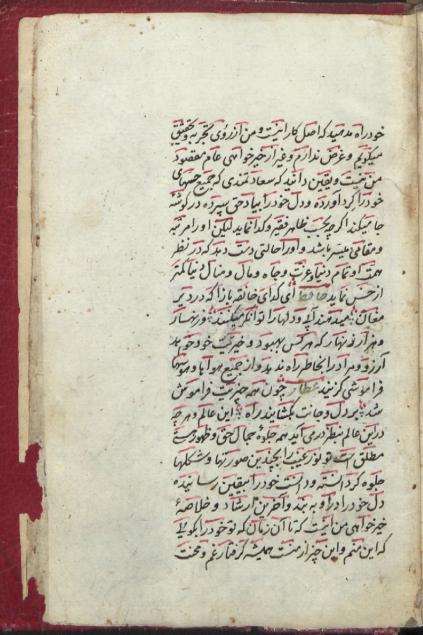 خود راه مدهید که اصل کار اینست و من از روی تجربه و تحقیق
میگویم و غرض ندارم و غیر از خیر خواهی عام مقصود
من نیست و یقین دانید که سعادتمندی که جمیع حسهای
خود را گرد آورده و دل خود را بیاد حق سپرده در گوشه
جا میکند اگر چه بحسب ظاهر فقیر و گدا نماید لیکن او را مرتبه
و مقامی میسر باشد و او را حالتی دست دهد که در نظر
همت او تمام دنیا و عزت و جاه و مال و منال دنیا کمتر
از خس نماید حافظ ای گدای خانقه باز آ که در دیر
مغان میدهند آبی و دلها را توانگر میکنند زنهار
و هزار زنهار که هر کس بهبود و خیریت خود خواهد
آرزو و مراد را بخاطر راه ندهد و از جمیع هوا و هوسها
فراموشی گزیند عطار چون همه چیزیت فراموش
شد بر دل و جانت بگشایند راه این عالم و هر چه
در این عالم بنظر در می آید همه جلوه جمال حق و ظهور هستی
مطلق است تو نور غیب را بچندین صورتها و شکلها
جلوه گر دانسته و دانست خود را بیقین رسانیده
دل خود را در او به بند و آخرین ارشاد و خلاصهٔ
خیر خواهی من اینست که تا آن زمان که تو خود را بگویی
که این منم و این چیز از منست همیشه گرفتار غم و محنت